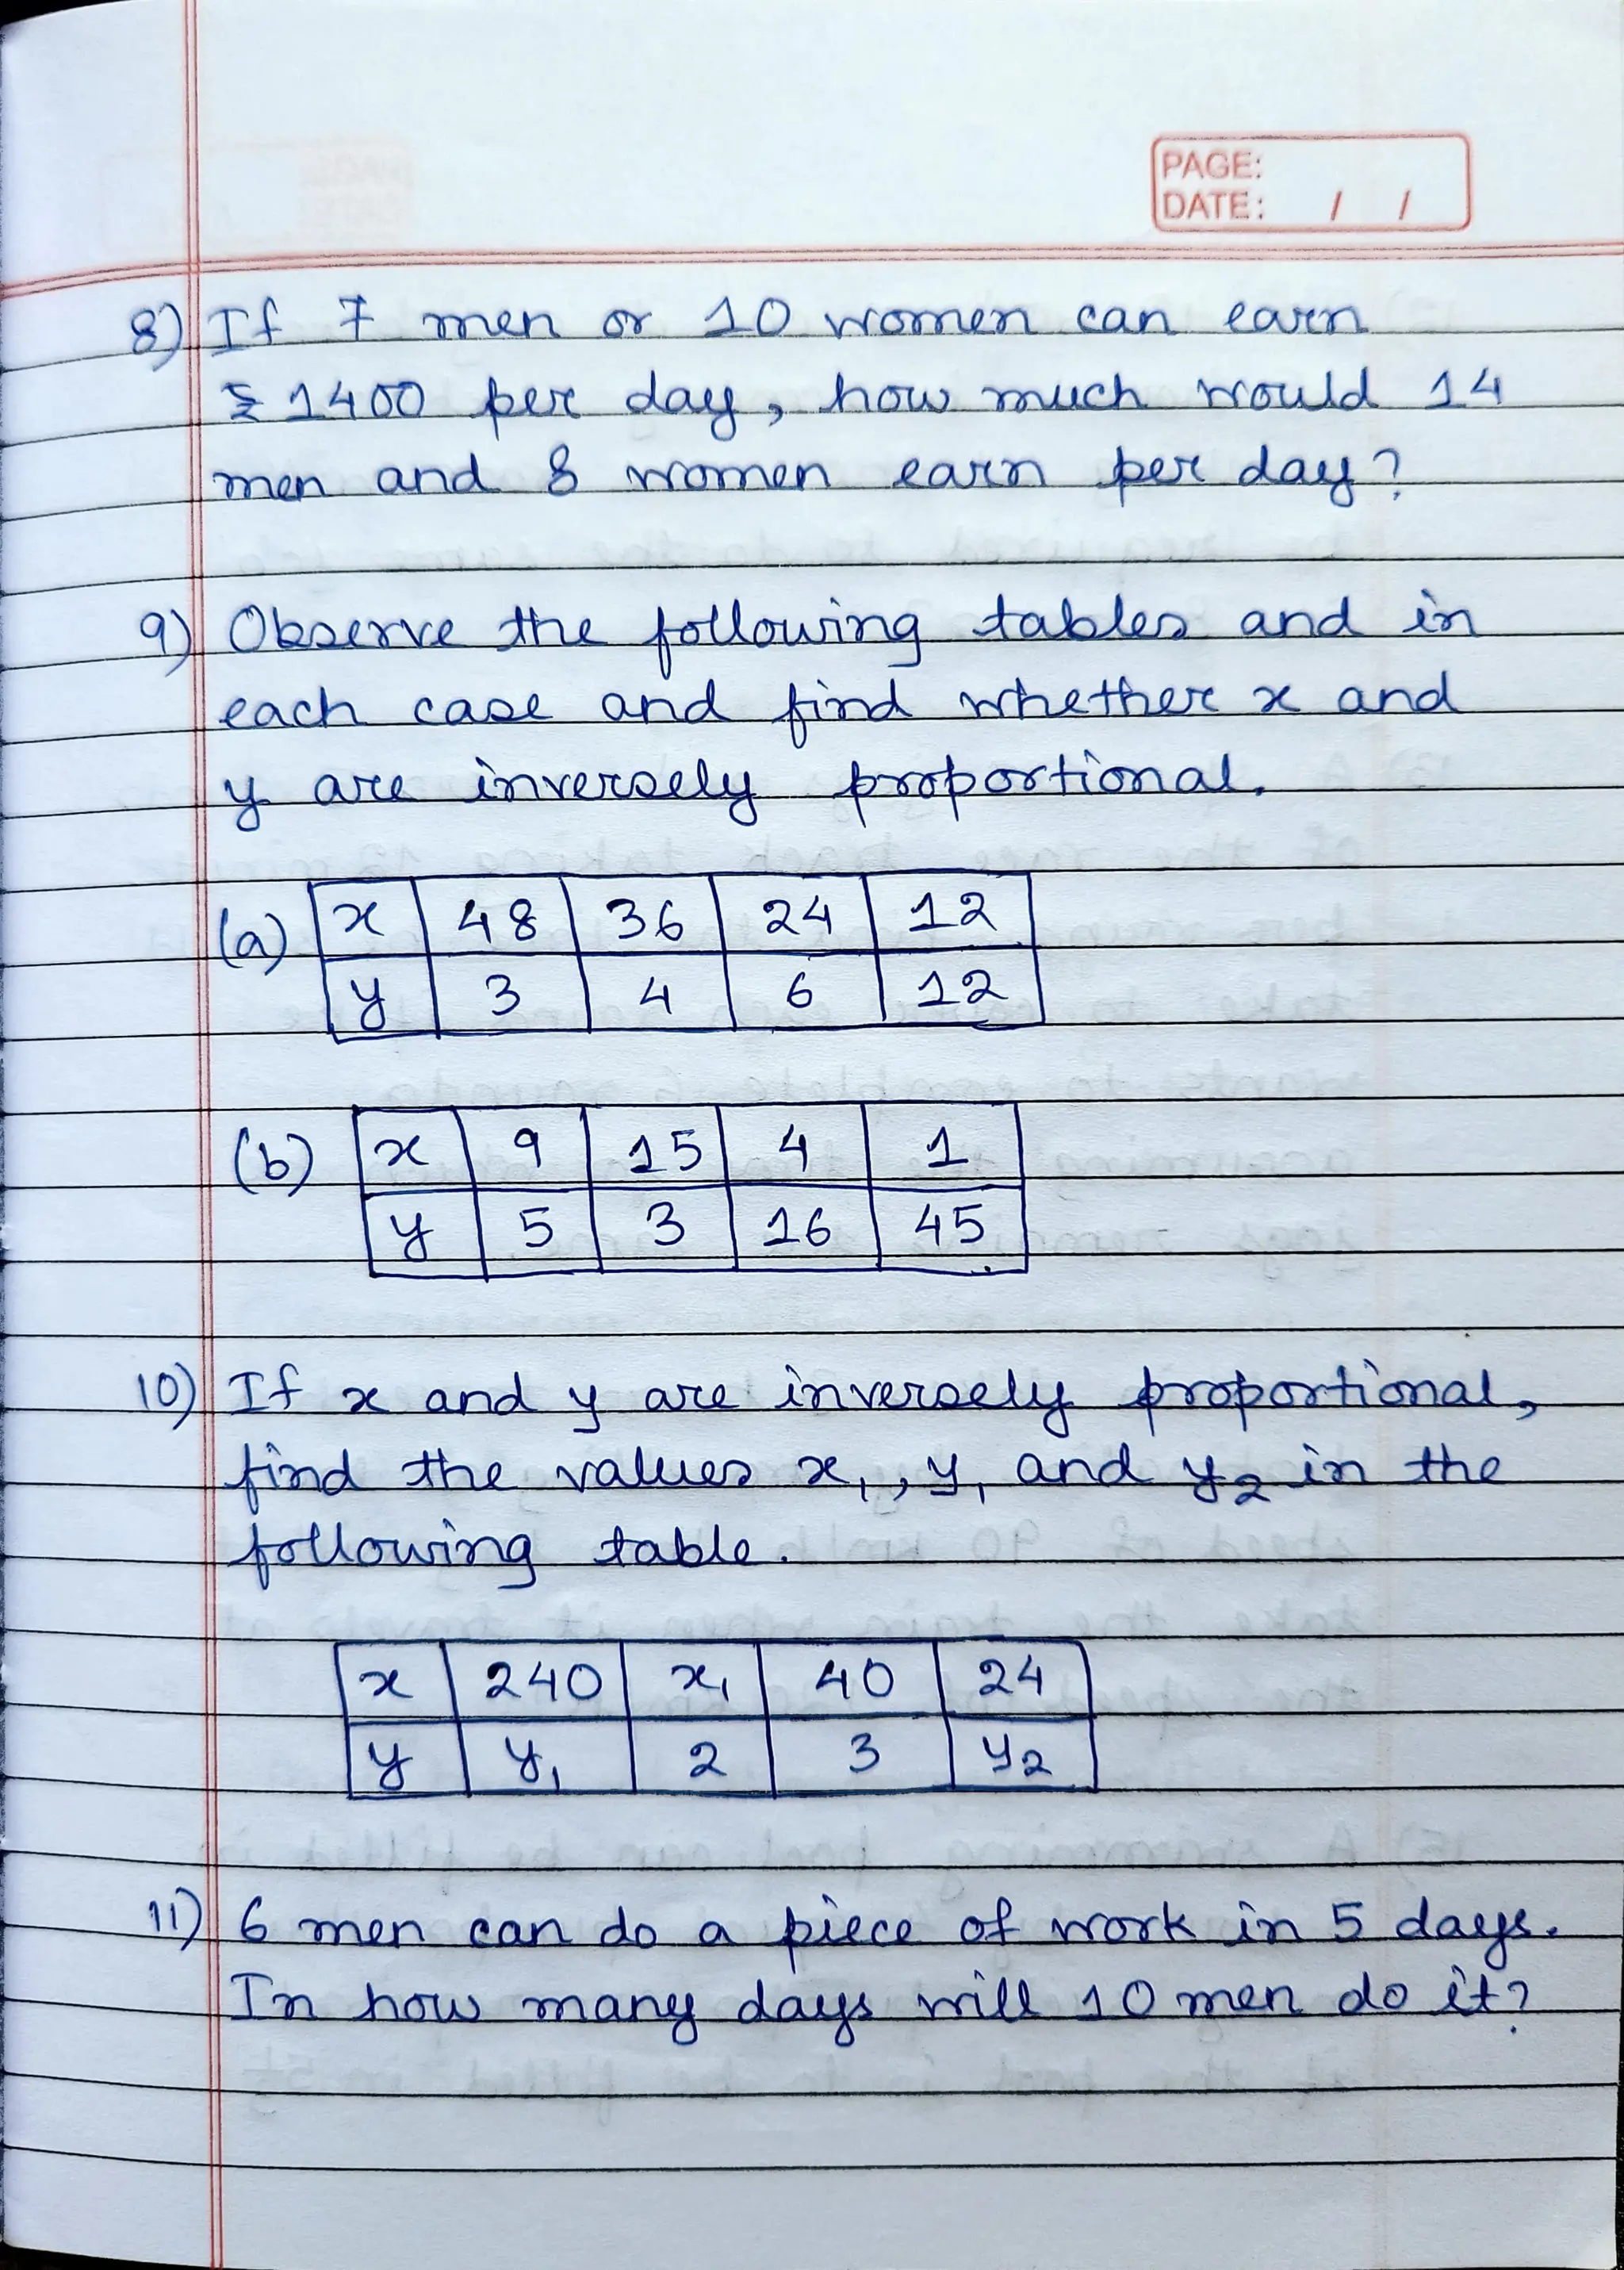 PAGE:
DATE: / /
8) If 7 men or 10 women can earn
₹ 1400 per day, how much would 14
men and 8 women earn per day?
9) Observe the following tables and in
each case and find whether x and
y are inversely proportional.
(a) x 48 36 24 12
y 3 4 6 12
(b) x 9 15 4 1
y 5 3 16 45
10) If x and y are inversely proportional,
find the values x₁, y₁ and y₂ in the
following table.
x 240 x₁ 40 24
y y₁ 2 3 y₂
11) 6 men can do a piece of work in 5 days.
In how many days will 10 men do it?